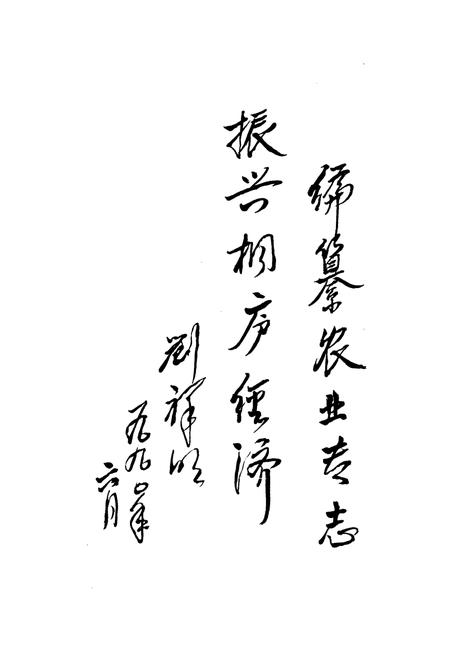 编纂农业专志
振兴桐庐经济
劉祥明
一九九〇年
六月